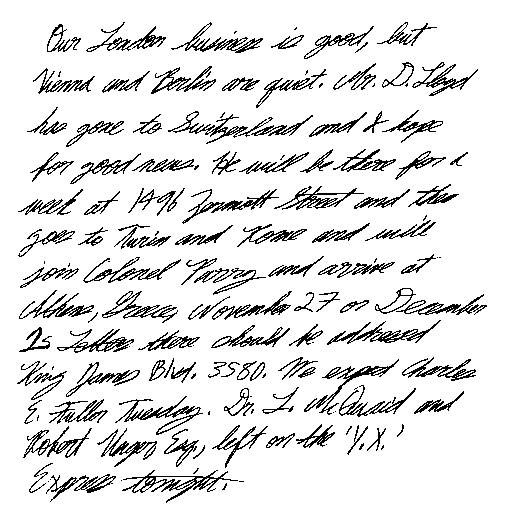 Our London business is good, but
Vienna and Berlin are quiet. Mr. D. Lloyd
has gone to Switzerland and I hope
for good news. He will be there for a
week at 1496 Zermott Street and then
goes to Turin and Rome and will
join Colonel Parry and arrive at
Athens, Greece, November 27 or December
2s Letters there should be addressed
King James Blvd. 3580. We expect Charles
E. Fuller Tuesday. Dr. L. McQuaid and
Robert Unger, Esq., left on the 'Y.X.'
Express tonight.